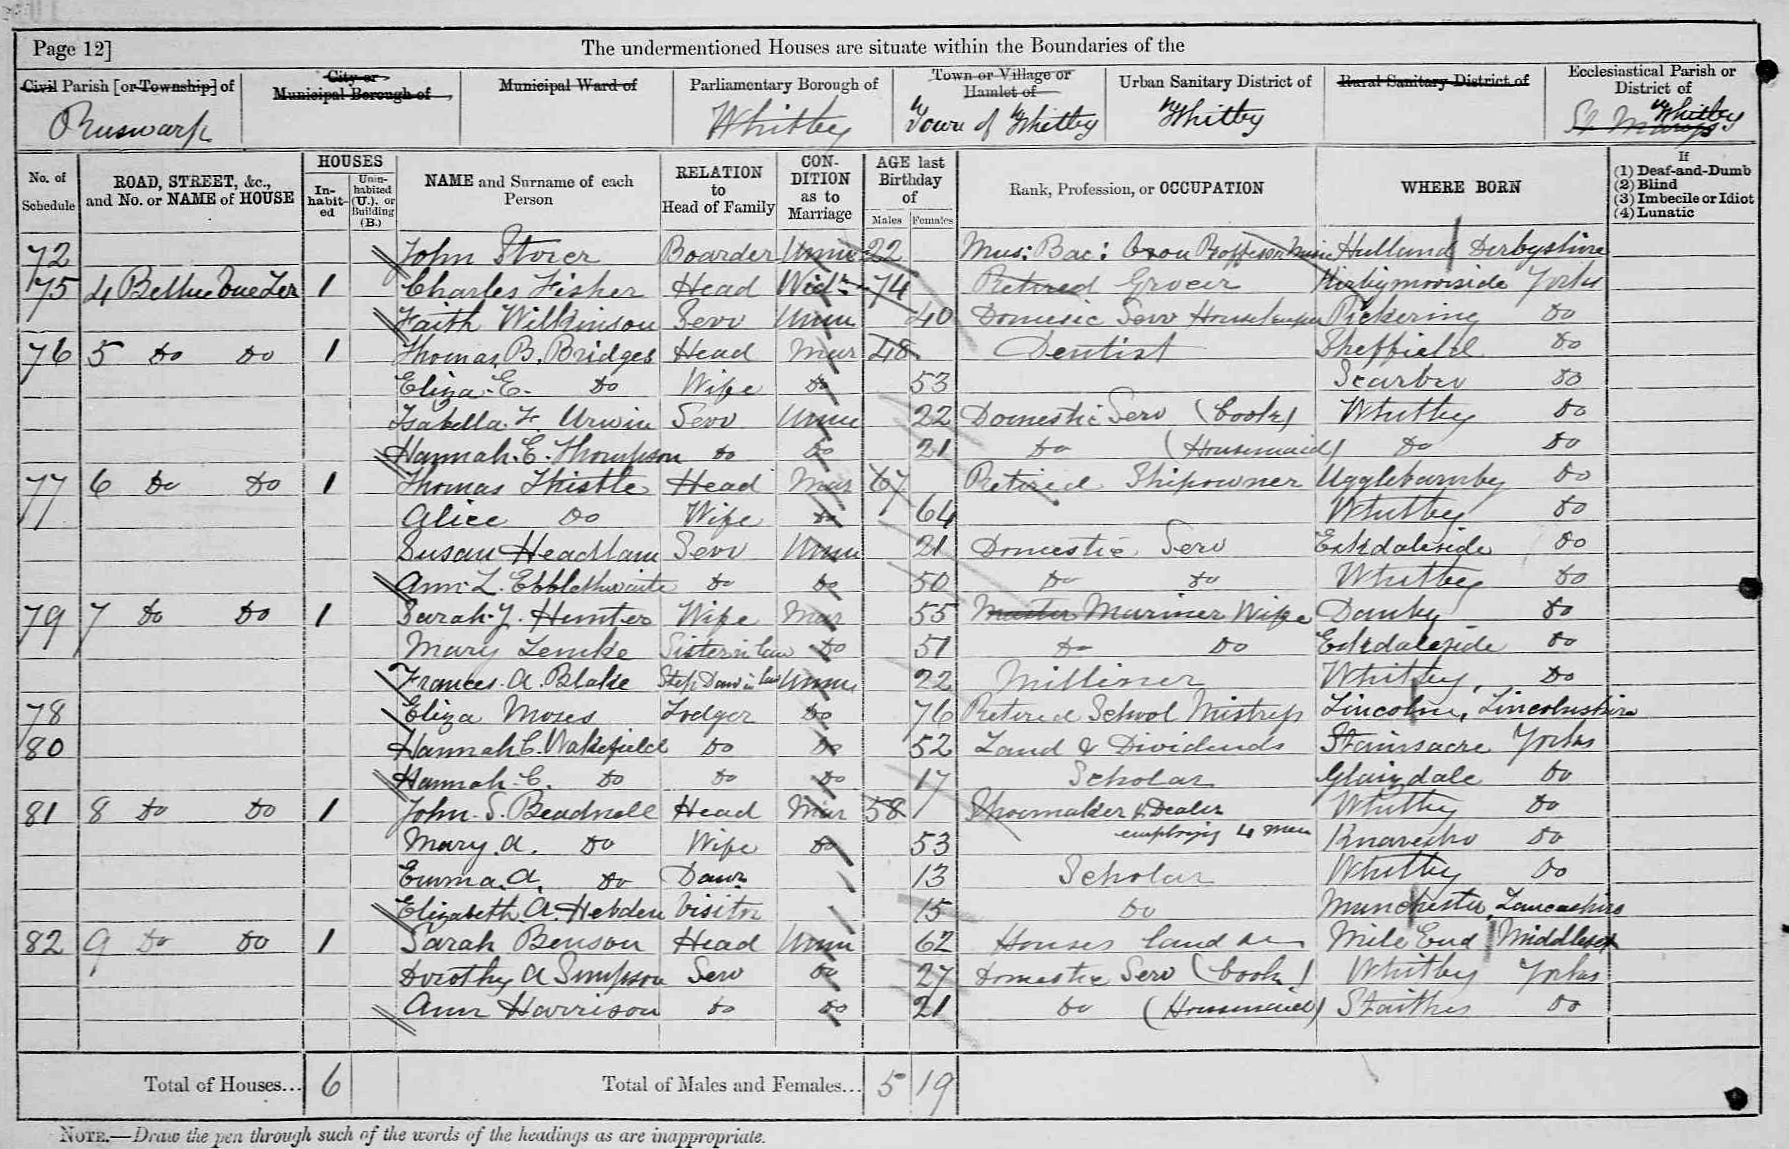 Page 12]
The undermentioned Houses are situate within the Boundaries of the
Civil Parish [or Township] of
City or Municipal Borough of
Municipal Ward of
Parliamentary Borough of
Town or Village or Hamlet of
Urban Sanitary District of
Rural Sanitary District of
Ecclesiastical Parish or District of
Ruswarp Whitby Town of Whitby Whitby St Marys Whitby
No. of Schedule
ROAD, STREET, &c., and No. or NAME of HOUSE
HOUSES
In-habit-ed
Unin-habited (U.), or Building (B.)
NAME and Surname of each Person
RELATION to Head of Family
CON-DITION as to Marriage
AGE last Birthday of
Males Females
Rank, Profession, or OCCUPATION
WHERE BORN
If
(1) Deaf-and-Dumb
(2) Blind
(3) Imbecile or Idiot
(4) Lunatic
72 John Storer Boarder Unm 22 Mus: Bac: Oxon Proffessor Music Hulland Derbyshire
75 4 Bellvue Ter 1 Charles Fisher Head Widr 74 Retired Grocer Kirbymoorside Yorks
Faith Wilkinson Serv Unm 40 Domesic Serv Housekeeper Pickering Do
76 5 Do Do 1 Thomas B. Bridges Head Mar 48 Dentist Sheffield Do
Eliza E. Do Wife Do 53 Scarbro Do
Isabella F. Urwin Serv Unm 22 Domestic Serv (Cook) Whitby Do
Hannah E. Thompson Do Do 21 Do (Housemaid) Do Do
77 6 Do Do 1 Thomas Thistle Head Mar 67 Retired Shipowner Ugglebarnby Do
Alice Do Wife Do 64 Whitby Do
Susan Headlam Serv Unm 21 Domestic Serv Eskdaleside Do
Ann L. Ebblethwaite Do Do 50 Do Do Whitby Do
79 7 Do Do 1 Sarah J. Hunter Wife Mar 55 Master Mariner Wife Danby Do
Mary Lemke Sister in law Do 51 Do Do Eskdaleside Do
Frances A. Blake Step Daur in law Unm 22 Milliner Whitby, Do
78 Eliza Moses Lodger Do 76 Retired School Mistress Lincoln, Lincolnshire
80 Hannah C. Wakefield Do Do 52 Land & Dividends Stainsacre Yorks
Hannah C. Do Do Do 17 Scholar Glaizdale Do
81 8 Do Do 1 John S. Beadnell Head Mar 58 Shoemaker & Dealer Whitby Do
employing 4 men
Mary A. Do Wife Do 53 Knaresbro Do
Emma A. Do Daur 13 Scholar Whitby Do
Elizabeth A. Hebden Visitor 15 Do Manchester, Lancashire
82 9 Do Do 1 Sarah Benson Head Unm 62 Houses land &c Mile End Middlesex
Dorothy A Simpson Serv Do 27 Domestic Serv (Cook) Whitby Yorks
Ann Harrison Do Do 21 Do (Housemaid) Staithes Do
Total of Houses... 6 Total of Males and Females... 5 19
NOTE.—Draw the pen through such of the words of the headings as are inappropriate.